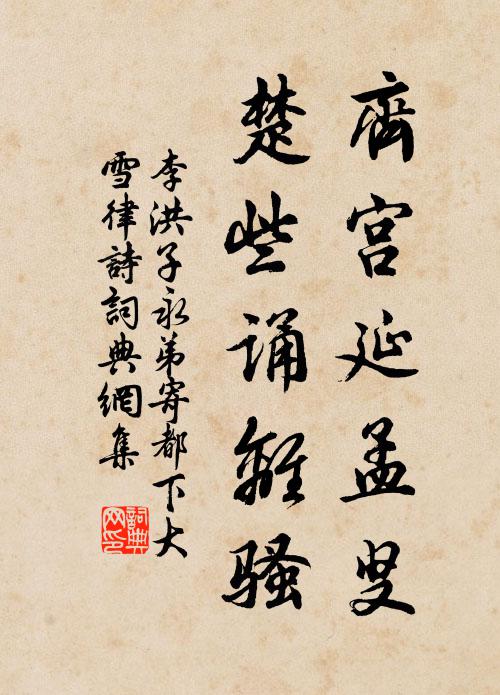 齊宮延孟叟
楚些诵離騷
李洪子永弟寄都下大
雪律詩詞典網集
詞典網印